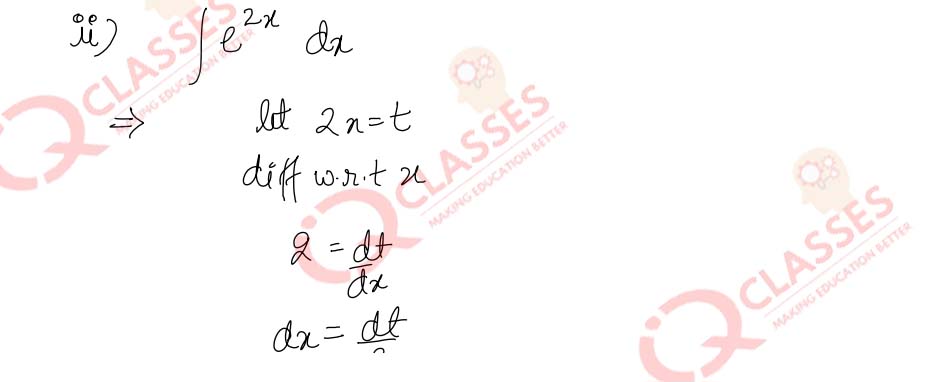 ii) ∫ e^{2x} dx
⇒ let 2x = t
diff w.r.t x
2 = dt/dx
dx = dt/
IQ CLASSES
MAKING EDUCATION BETTER
IQ CLASSES
MAKING EDUCATION BETTER
IQ CLASSES
MAKING EDUCATION BETTER